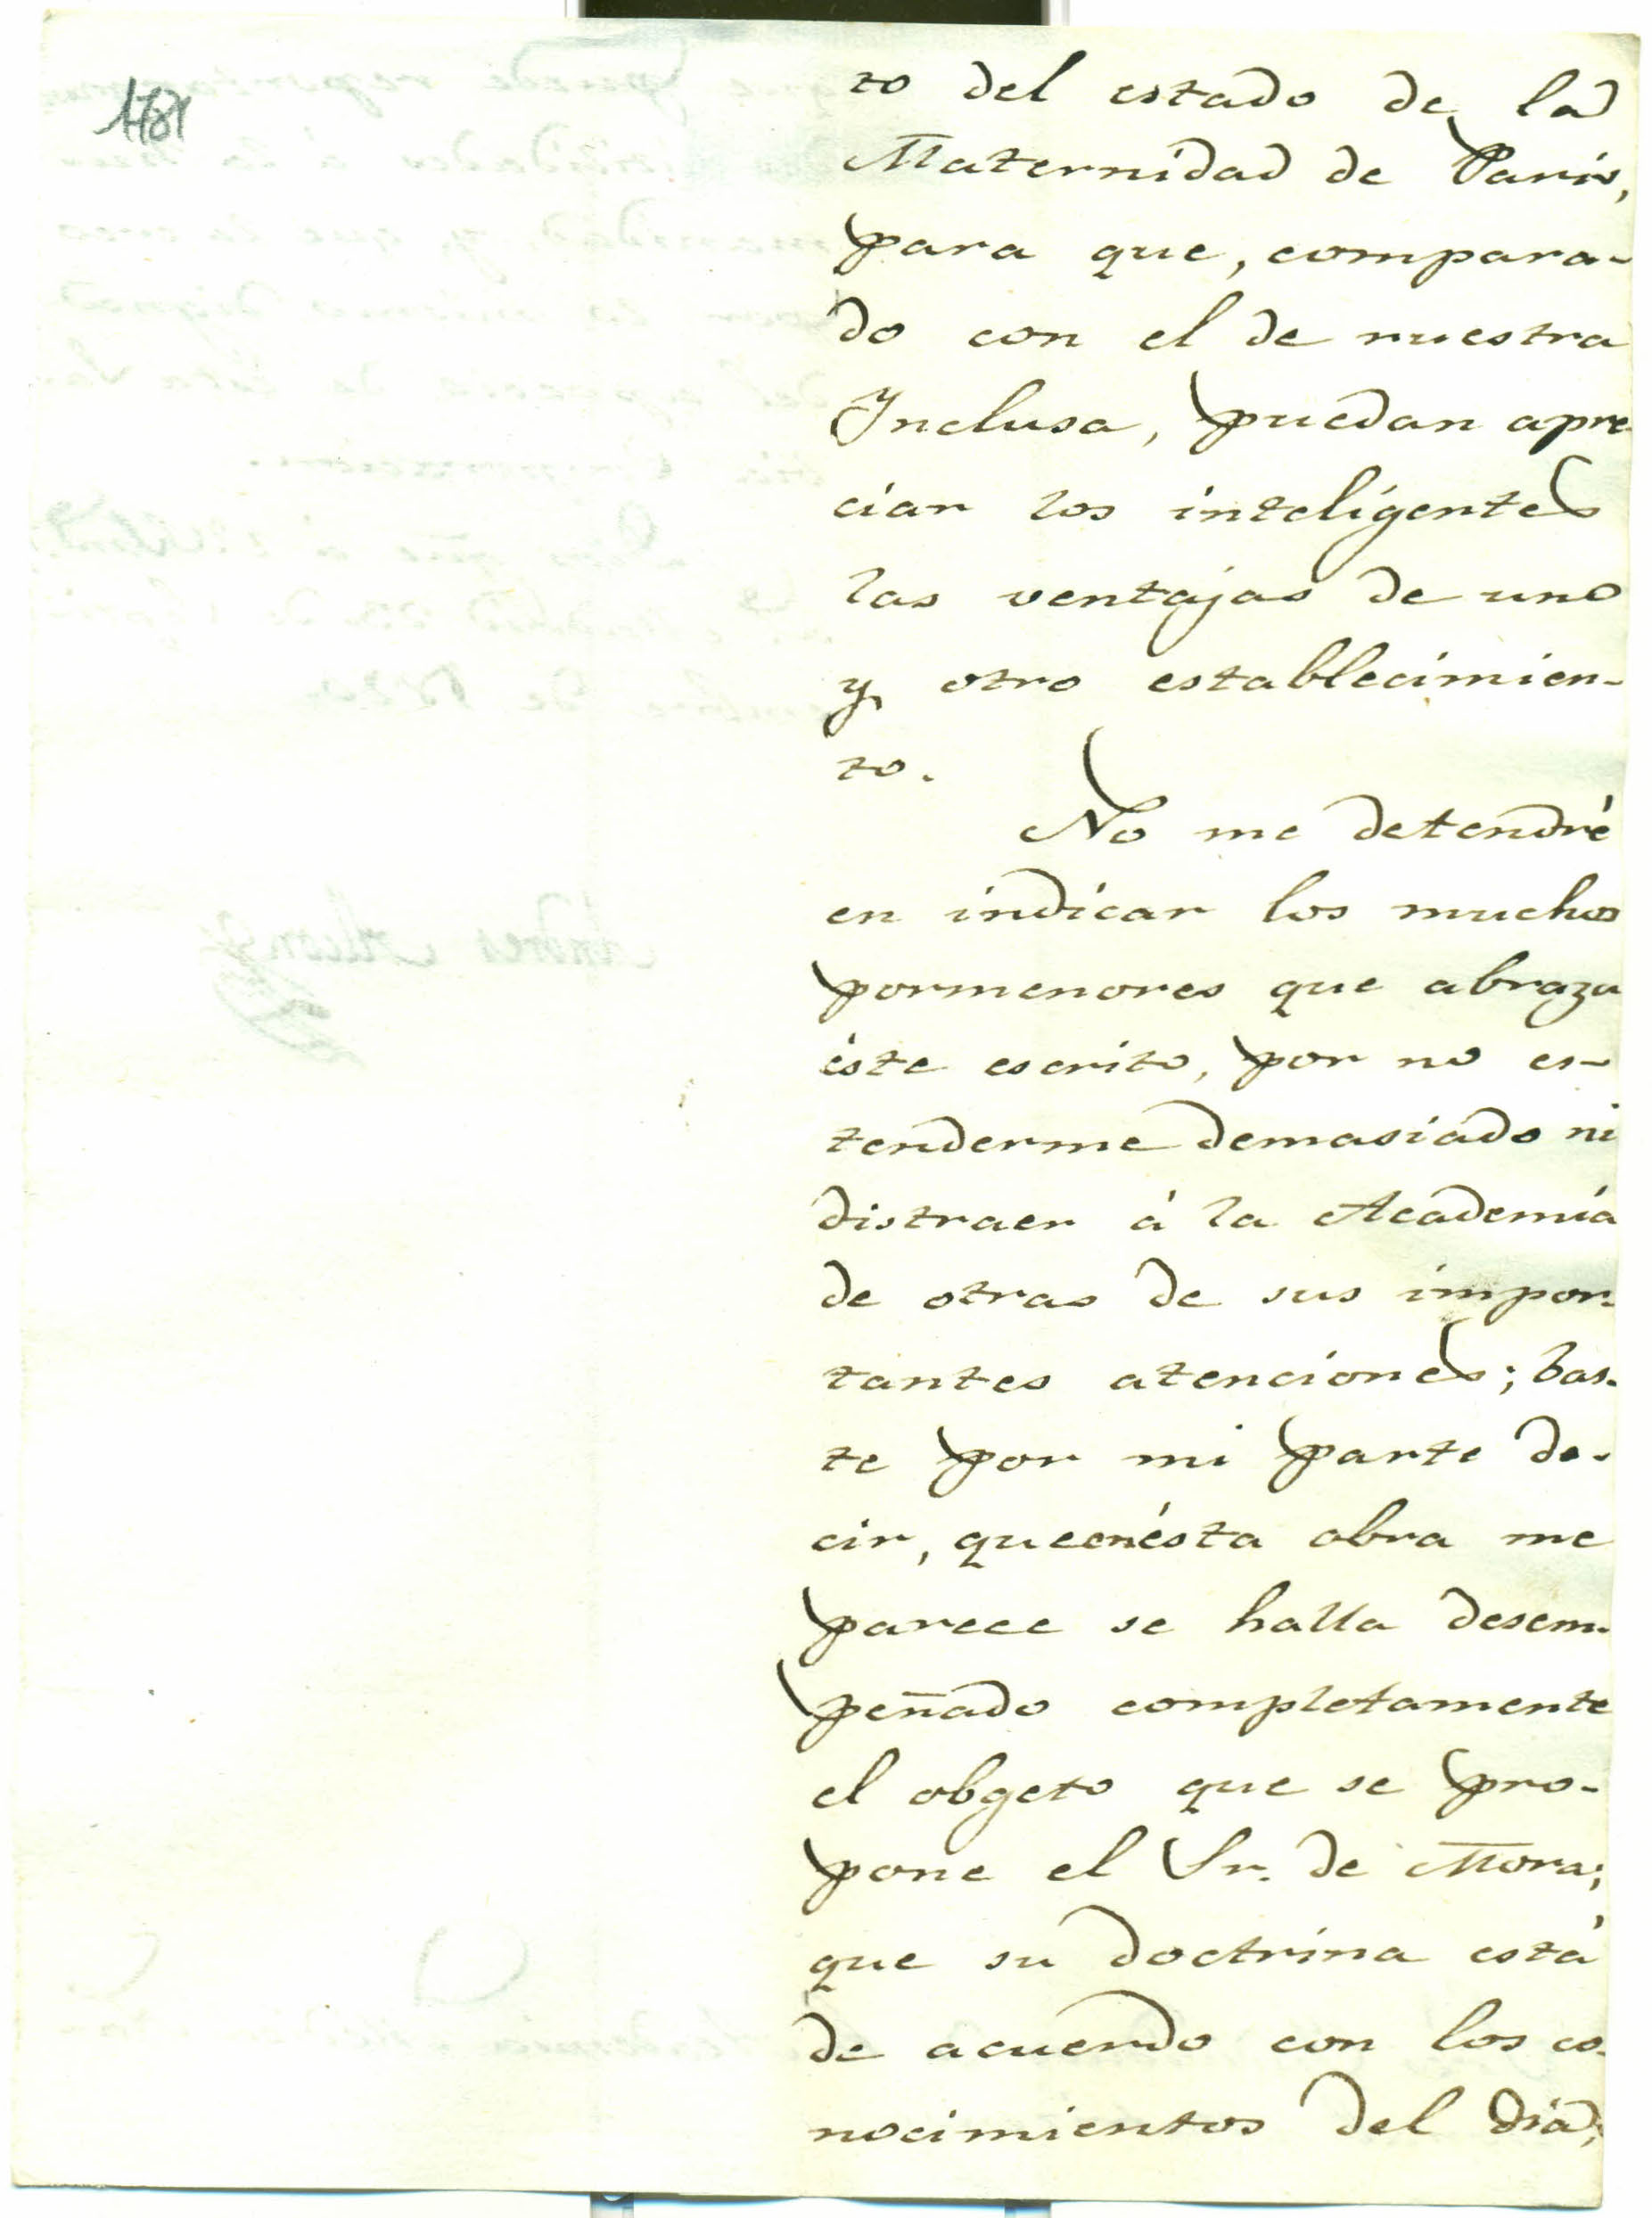 to del estado de la
Maternidad de Paris,
para que, compara-
do con el de nuestra
Ynclusa, puedan apre-
ciar los inteligentes
las ventajas de uno
y otro establecimien-
to.
No me detendré
en indicar los muchos
pormenores que abraza
éste escrito, por no es-
tenderme demasiado ni
distraer á la Academia
de otras de sus impor-
tantes atenciones; bas-
te por mi parte de-
cir, que en ésta obra me
parece se halla desem-
peñado completamente
el obgeto que se pro-
pone el Sr. de Mora;
que su doctrina está
de acuerdo con los co-
nocimientos del dia;